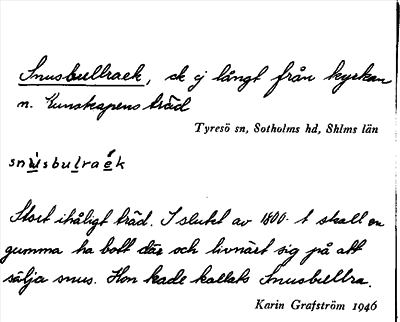 Snusbullraek, ek ej långt från kyrkan
n. Kunskapens träd
Tyresö sn, Sotholms hd, Shlms län
snu̇sbulraék
Stort ihåligt träd. I slutet av 1800-t skall en
gumma ha bott där och livnärt sig på att
sälja snus. Hon hade kallats Snusbullra.
Karin Grafström 1946